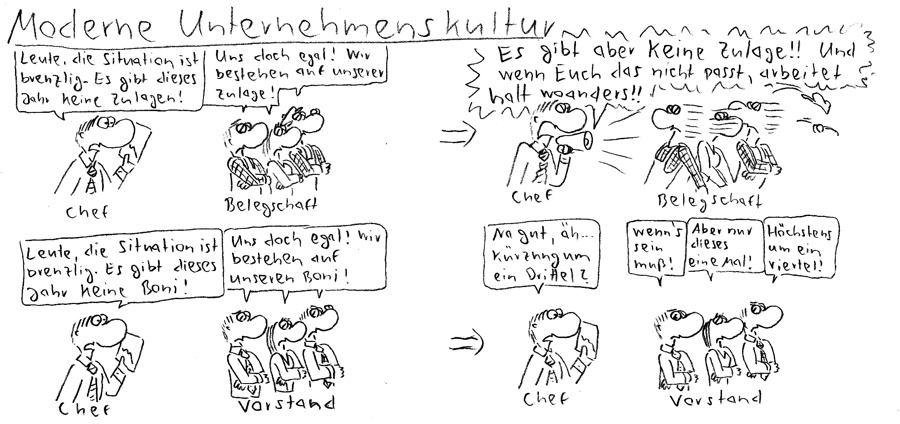 Moderne Unternehmenskultur
Leute, die Situation ist
brenzlig. Es gibt dieses
Jahr keine Zulagen!
Uns doch egal! Wir
bestehen auf unserer
Zulage!
Chef
Belegschaft
Es gibt aber keine Zulage!! Und
wenn Euch das nicht passt, arbeitet
halt woanders!!
Chef
Belegschaft
Leute, die Situation ist
brenzlig. Es gibt dieses
Jahr keine Boni!
Uns doch egal! Wir
bestehen auf
unseren Boni!
Chef
Vorstand
Na gut, äh...
Kürzung um
ein Drittel?
wenn's
sein
muß!
Aber nur
dieses
eine Mal!
Höchstens
um ein
viertel!
Chef
Vorstand